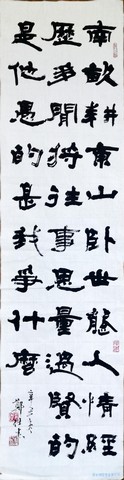 南畝耕東山卧世態人情經
歷多閒將往事思量過賢的
是他愚的是我爭什麼